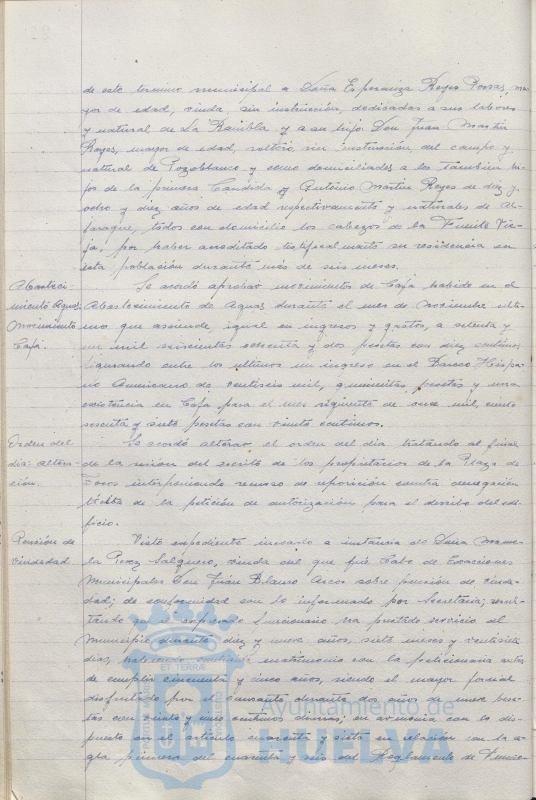 de este termino municipal a Doña Esperanza Reyes Porras, ma-
yor de edad, viuda, sin instrucción, dedicada a sus labores
y natural de La Rambla y a su hijo Don Juan Martin
Reyes, mayor de edad, soltero, sin instrucción, del campo y
natural de Pozoblanco y como domiciliados a los tambien hi-
jos de la primera Candida y Antonio Martin Reyes de diez y
ocho y diez años de edad respectivamente y naturales de Al-
jaraque, todos con domicilio los cabezos de la Fuente Vie-
ja, por haber acreditado testificalmente su residencia en
esta población durante más de seis meses.
Abasteci-
miento Aguas
Movimiento
Caja.
Se acordó aprobar movimientos de Caja habido en el
Abastecimiento de Aguas durante el mes de Noviembre últi-
mo que asciende, igual en ingresos y gastos, a setenta y
un mil seiscientas y dos pesetas con diez centimos,
figurando entre los ultimos un ingreso en el Banco Hispa-
no Americano de veintiseis mil, quinientas pesetas y una
existencia en Caja para el mes siguiente de once mil, ciento
sesenta y siete pesetas con veinte centimos.
Orden del
dia: altera-
ción.
Se acordó alterar el orden del dia tratando al final
de la sesión del escrito de los propietarios de la Plaza de
Toros interponiendo recurso de reposición contra denegación
tácita de la petición de autorización para el derribo del edi-
ficio.
Pensión de
viudedad.
Visto expediente incoado a instancia de Doña Manue-
la Perez Salguero, viuda del que fué Cabo de Exacciones
Municipales Don Juan Blanco Arcos sobre pensión de viude-
dad; de conformidad con lo informado por Secretaria; resul-
tando que el expresado funcionario ha prestado servicio al
Municipio durante diez y nueve años, siete meses y veintisiete
dias, habiendo contraido matrimonio con la peticionaria antes
de cumplir cincuenta y cinco años, siendo el mayor jornal
disfrutado por el causante durante dos años de nueve pese-
tas con veinte y un centimos diarias; en armonia con lo dis-
puesto en el articulo cuarenta y siete en relación con la re-
gla primera del cuarenta y seis del Reglamento de Funcio-
Ayuntamiento de
HUELVA